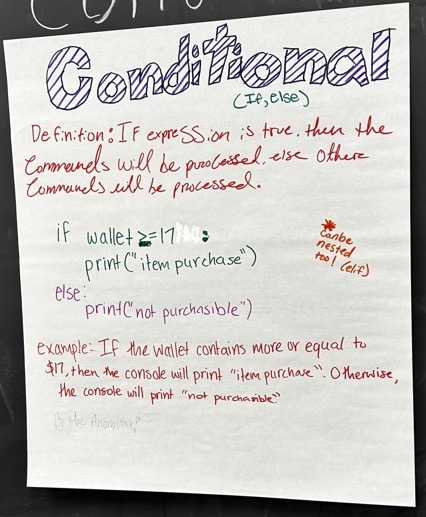 Conditional
(If, else)
Definition: If expression is true, then the
Commands will be processed, else other
Commands will be processed.
if wallet >=17 :
print("item purchase")
else:
print("not purchasible")
* Can be
nested
too! (elif)
example: If the wallet contains more or equal to
$17, then the console will print "item purchase". Otherwise,
the console will print "not purchasible".
By the